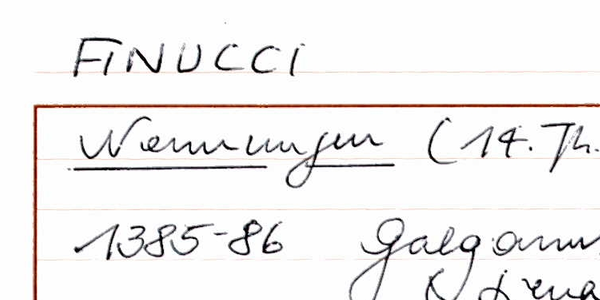 FINUCCI
Nennungen (14. Jh.
1385-86 Galganus